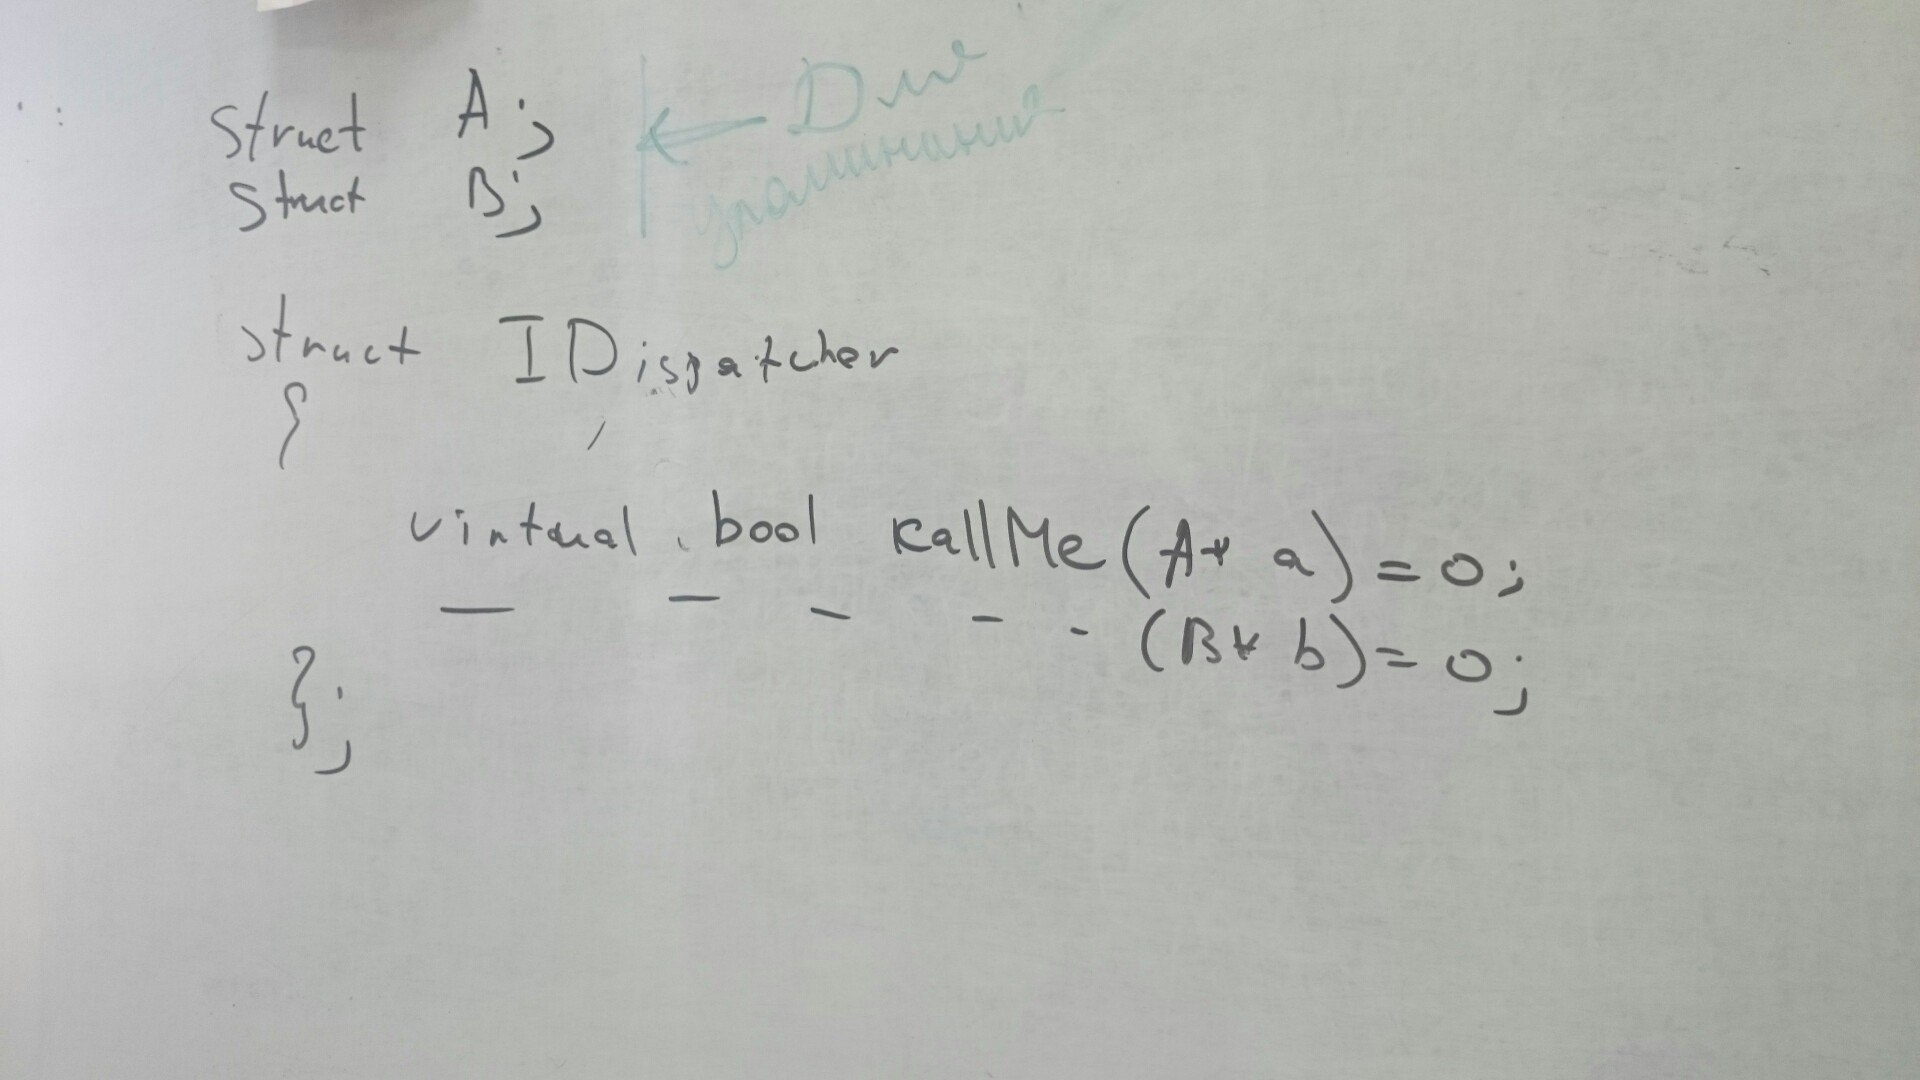 struct A;
struct B;
← Для
упоминания
struct IDispatcher
{
virtual bool kallMe(A* a)=0;
— — - - - (B* b)=0;
};